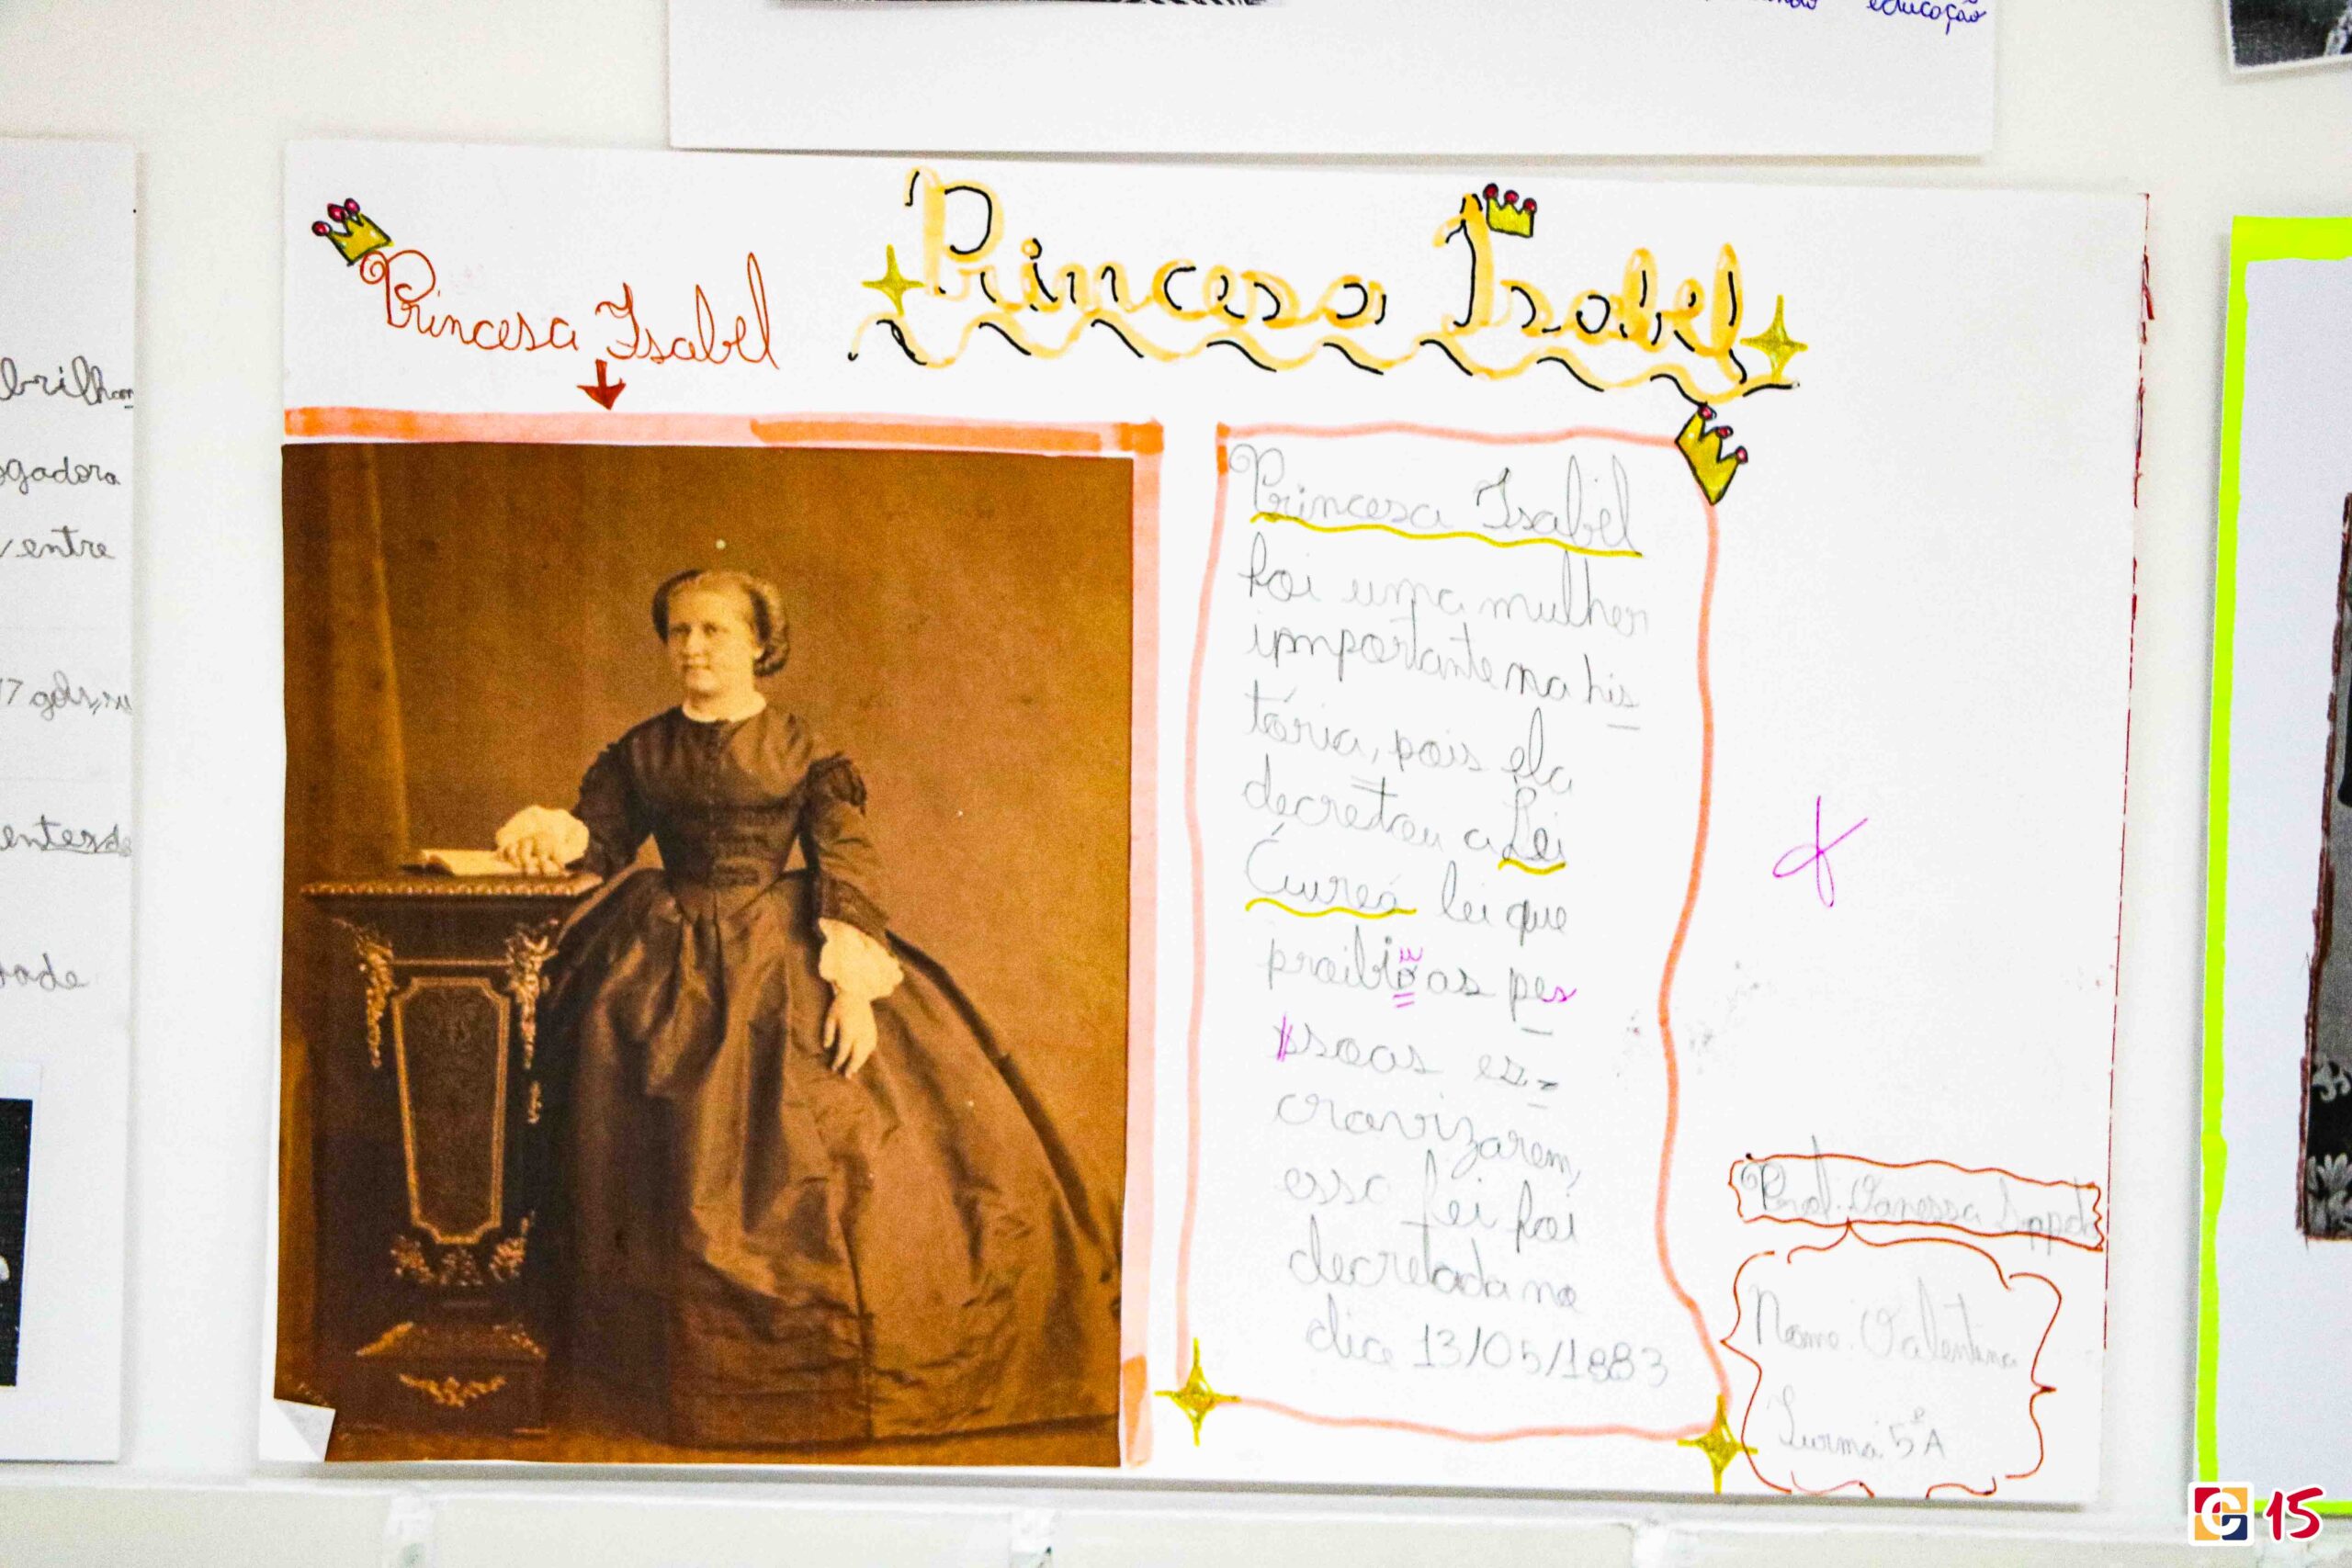 educação
brilhan
ogadora
entre
17 gols, su
entes de
dade
Princesa Isabel
Princesa Isabel
Princesa Isabel
foi uma mulher
importante na his
tória, pois ela
decretou a Lei
Áurea lei que
proibiu as pes
ssoas es-
cravizarem,
essa lei foi
decretada no
dia 13/05/1883
Prof. Vanessa
Nome: Valentina
Turma 5º A
15